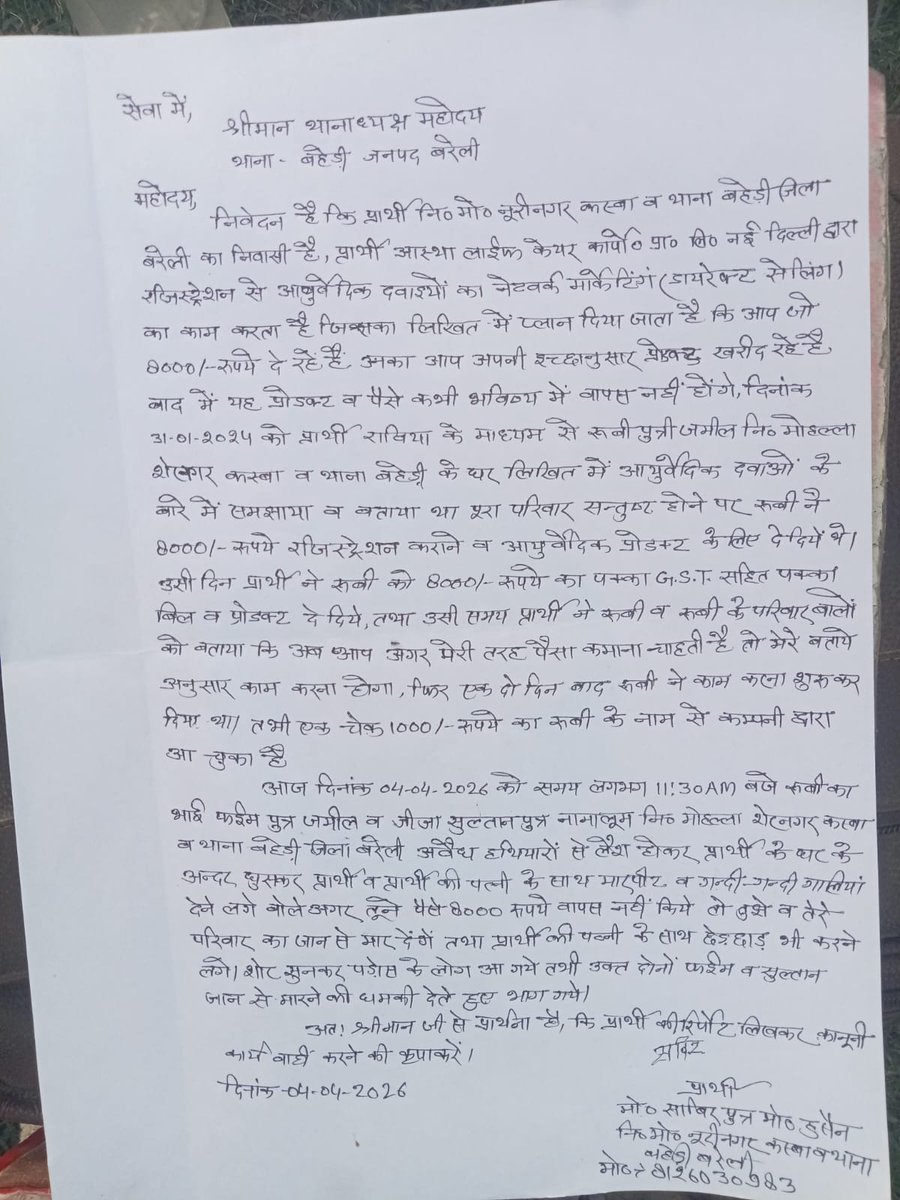 सेवा में,
श्रीमान थानाध्यक्ष महोदय
थाना - बहेडी जनपद बरेली
महोदय,
निवेदन है कि प्रार्थी नि० मो० नूरीनगर कस्बा व थाना बहेड़ी जिला
बरेली का निवासी है, प्रार्थी आस्था लाईफ केयर कार्पो० प्रा० लि० नई दिल्ली द्वारा
रजिस्ट्रेशन से आयुर्वेदिक दवाइयों का नेटवर्क मार्केटिंग (डायरेक्ट सेलिंग)
का काम करता है जिसका लिखित में प्लान दिया जाता है कि आप जो
8000/- रूपये दे रहें हैं उसका आप अपनी इच्छानुसार प्रोडक्ट खरीद रहे है,
बाद में यह प्रोडक्ट व पैसे कभी भविष्य में वापस नहीं होंगे, दिनांक
31-01-2024 को प्रार्थी राबिया के माध्यम से रूबी पुत्री जमील नि० मोहल्ला
शेरनगर कस्बा व थाना बहेड़ी के घर लिखित में आयुर्वेदिक दवाओं के
बारे में समझाया व बताया था पूरा परिवार सन्तुष्ट होने पर रूबी ने
8000/- रूपये रजिस्ट्रेशन कराने व आयुर्वेदिक प्रोडक्ट के लिए दे दियें थे।
उसी दिन प्रार्थी ने रूबी को 8000/- रूपये का पक्का G.S.T. सहित पक्का
बिल व प्रोडक्ट दे दिये, तथा उसी समय प्रार्थी ने रूबी व रूबी के परिवार वालों
को बताया कि अब आप अगर मेरी तरह पैसा कमाना चाहती है तो मेरे बताये
अनुसार काम करना होगा, फिर एक दो दिन बाद रूबी ने काम करना शुरू कर
दिया था। तभी एक चेक 1000/- रूपये का रूबी के नाम से कम्पनी द्वारा
आ चुका है
आज दिनांक 04-04-2026 को समय लगभग 11:30AM बजे रूबी का
भाई फईम पुत्र जमील व जीजा सुल्तान पुत्र नामालूम नि० मोहल्ला शेरनगर कस्बा
व थाना बहेडी जिला बरेली अवैध हथियारों से लैश होकर प्रार्थी के घर के
अन्दर घुसकर प्रार्थी व प्रार्थी की पत्नी के साथ मारपीट व गन्दी-गन्दी गालियां
देने लगे बोले अगर तूने पैसे 8000 रूपये वापस नहीं किये तो तुझे व तेरे
परिवार का जान से मार देंगें तथा प्रार्थी की पत्नी के साथ छेड़छाड़ भी करने
लगे। शोर सुनकर पड़ोस के लोग आ गये तभी उक्त दोनों फईम व सुल्तान
जान से मारने की धमकी देते हुए भाग गये।
अतः श्रीमान जी से प्रार्थना है, कि प्रार्थी की रिपोर्ट लिखकर कानूनी
कार्यवाही करने की कृपा करें।
साबिर
दिनांक-04-04-2026
प्रार्थी
मो० साबिर पुत्र मो० हुसैन
नि० मो० नूरीनगर कस्बा व थाना
बहेडी बरेली
मो० नं 8126030983